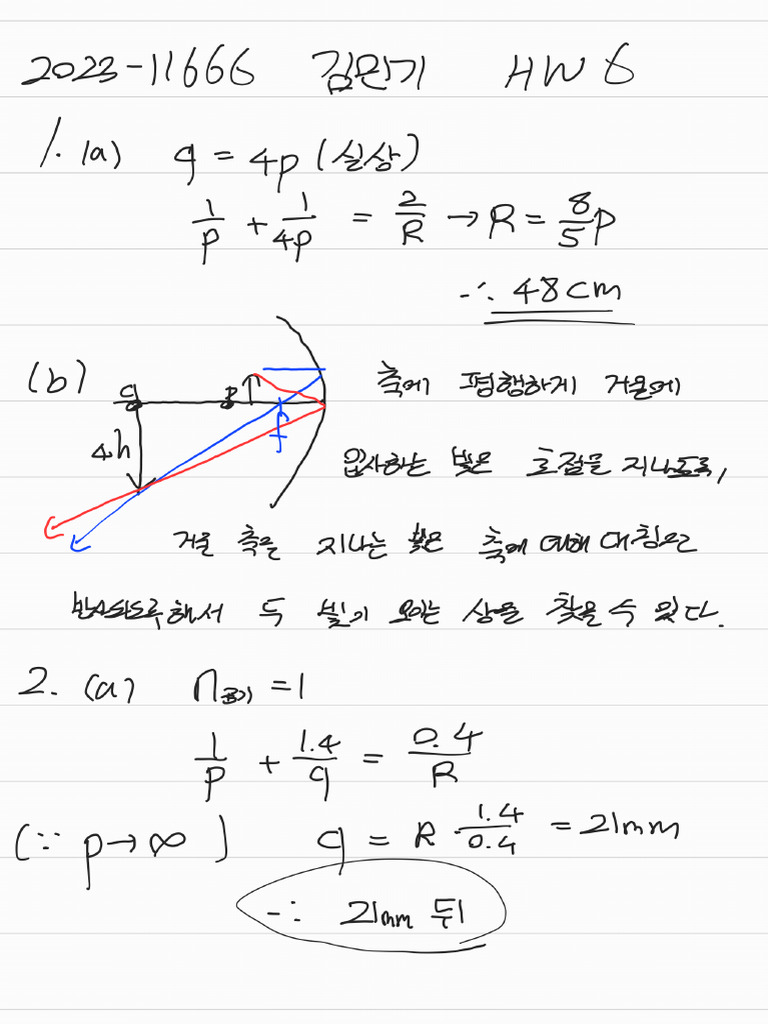 2023-11666 김민기 HW 6
1. (a) q = 4p (실상)
1/p + 1/4p = 2/R → R = 8/5 p
∴ 48cm
(b) q p 4h f 축에 평행하게 거울에
입사하는 빛은 초점을 지나도록,
거울 축을 지나는 빛은 축에 의해 대칭으로
반사되도록 해서 두 빛이 모이는 상을 찾을 수 있다.
2. (a) n공기 = 1
1/p + 1.4/q = 0.4/R
(∵ p→∞) q = R · 1.4/0.4 = 21mm
∴ 21mm 뒤